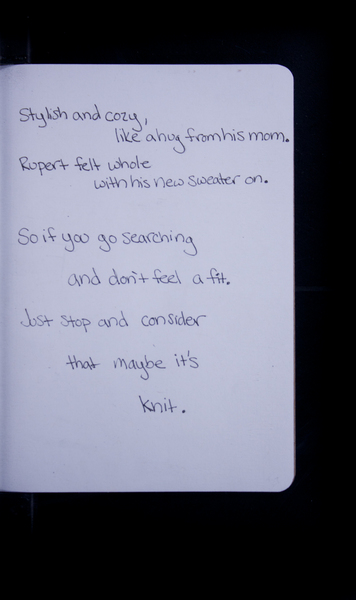 Stylish and cozy,
like a hug from his mom.
Rupert felt whole
with his new sweater on.
So if you go searching
and don't feel a fit.
Just stop and consider
that maybe it's
knit.